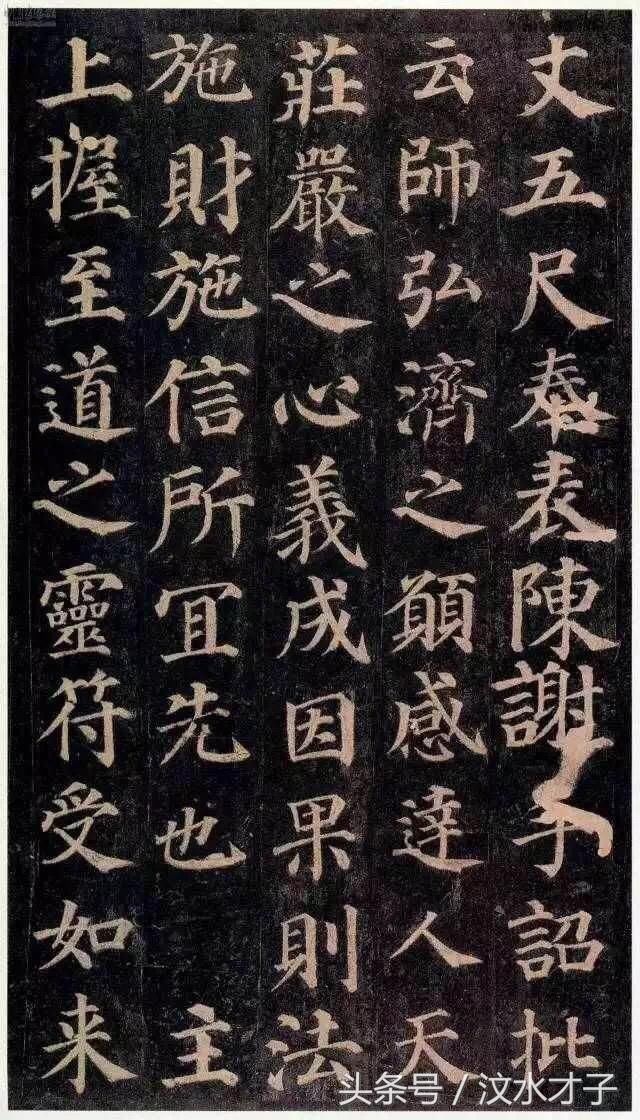 丈五尺奉表陳謝手詔批
云師弘濟之願感達人天
莊嚴之心義成因果則法
施財施信所宜先也 主
上握至道之靈符受如来
头条号 / 汶水才子